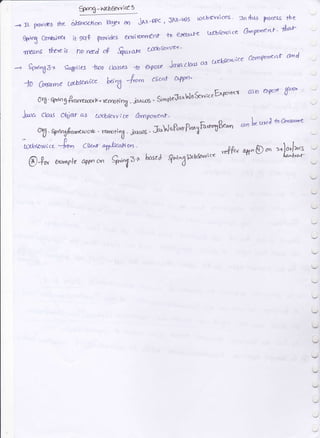 Spring-webservices
→ It provides the abstraction layer on Jax-RPC, Jax-ws webservices. In this process the
Spring Container it self provides environment to execute webservice Component. that
means there is no need of Separate webserver.
→ Spring 3.x supplies two classes to expose Java class as webservice Component and
to Consume webservice being from client appn.
org.springframework.remoting.jaxws.SimpleJaxWsServiceExporter can expose given
Java class object as webservice component.
org.springframework.remoting.jaxws.JaxWsPortProxyFactoryBean can be used to Consume
webservice from Client application.
for example appn on Spring 3.x based Spring webservice reffer appn on